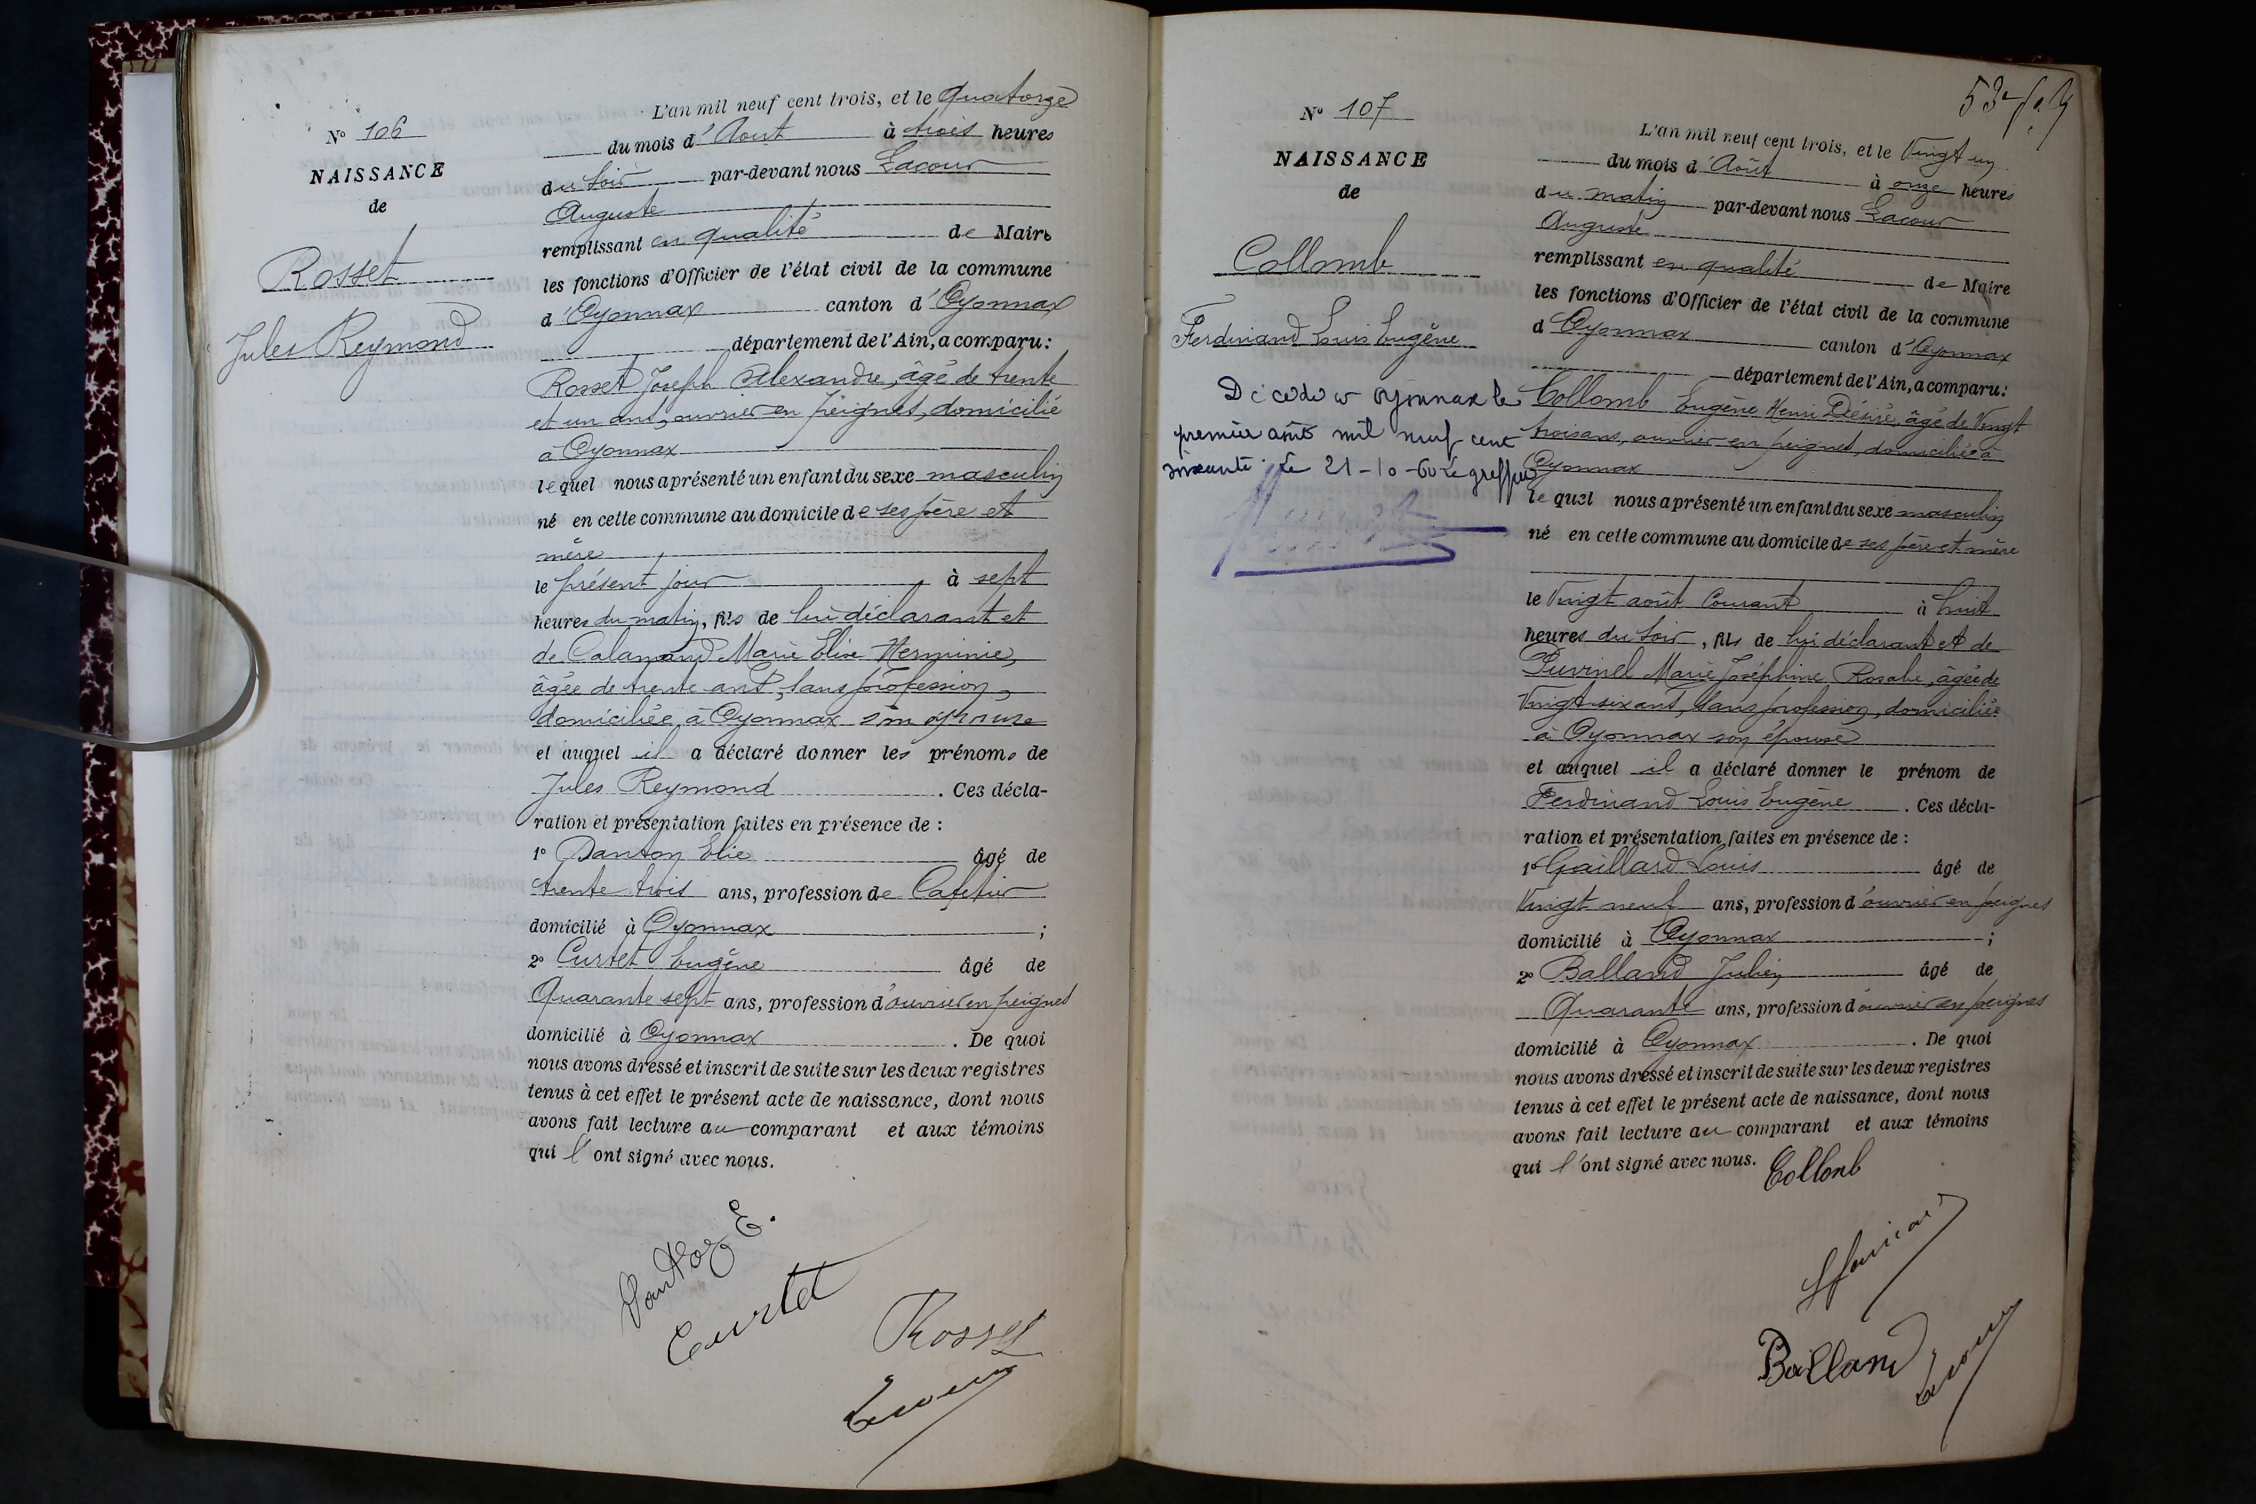 L'an mil neuf cent trois, et le Quatorze
N° 106
du mois d'Aout à trois heures
NAISSANCE
du soir par-devant nous Lacour
de
Auguste
remplissant en qualité de Maire
Rosset
les fonctions d'Officier de l'état civil de la commune
d'Oyonnax canton d'Oyonnax
Jules Reymond
département de l'Ain, a comparu:
Rosset Joseph Alexandre, âgé de trente
et un ans, ouvrier en peignes, domicilié
à Oyonnax
lequel nous a présenté un enfant du sexe masculin
né en cette commune au domicile de ses père et
mère
le présent jour à sept
heures du matin, fils de lui déclarant et
de Marie Elise Herminie,
âgée de trente ans, sans profession,
domiciliée à Oyonnax son épouse
et auquel il a déclaré donner les prénoms de
Jules Reymond. Ces décla-
ration et présentation faites en présence de :
1° Danton Elie âgé de
trente trois ans, profession de Cafetier
domicilié à Oyonnax ;
2° Curtet Eugène âgé de
Quarante sept ans, profession d'ouvrier en peignes
domicilié à Oyonnax. De quoi
nous avons dressé et inscrit de suite sur les deux registres
tenus à cet effet le présent acte de naissance, dont nous
avons fait lecture au comparant et aux témoins
qui l'ont signé avec nous.
Danton E.
Curtet
Rosset
Lacour
53
N° 107
L'an mil neuf cent trois, et le Vingt un
du mois d'Août à onze heures
NAISSANCE
du matin par-devant nous Lacour
de
Auguste
remplissant en qualité de Maire
Collomb
les fonctions d'Officier de l'état civil de la commune
d'Oyonnax canton d'Oyonnax
Ferdinand Louis Eugène
département de l'Ain, a comparu:
Décédé à Oyonnax le
premier août mil neuf cent
soixante. Le 21-10-60 Le greffier
Collomb Eugène Henri Désiré, âgé de Vingt
trois ans, ouvrier en peignes, domicilié à
Oyonnax
lequel nous a présenté un enfant du sexe masculin
né en cette commune au domicile de ses père et mère
le Vingt août Courant à huit
heures du soir, fils de lui déclarant et de
Marie Joséphine Rosalie, âgée de
Vingt six ans, sans profession, domiciliée
à Oyonnax son épouse
et auquel il a déclaré donner le prénom de
Ferdinand Louis Eugène. Ces décla-
ration et présentation faites en présence de :
1° Gaillard Louis âgé de
Vingt neuf ans, profession d'ouvrier en peignes
domicilié à Oyonnax ;
2° Balland Julien âgé de
Quarante ans, profession d'ouvrier en peignes
domicilié à Oyonnax. De quoi
nous avons dressé et inscrit de suite sur les deux registres
tenus à cet effet le présent acte de naissance, dont nous
avons fait lecture au comparant et aux témoins
qui l'ont signé avec nous.
Collomb
Balland
Lacour